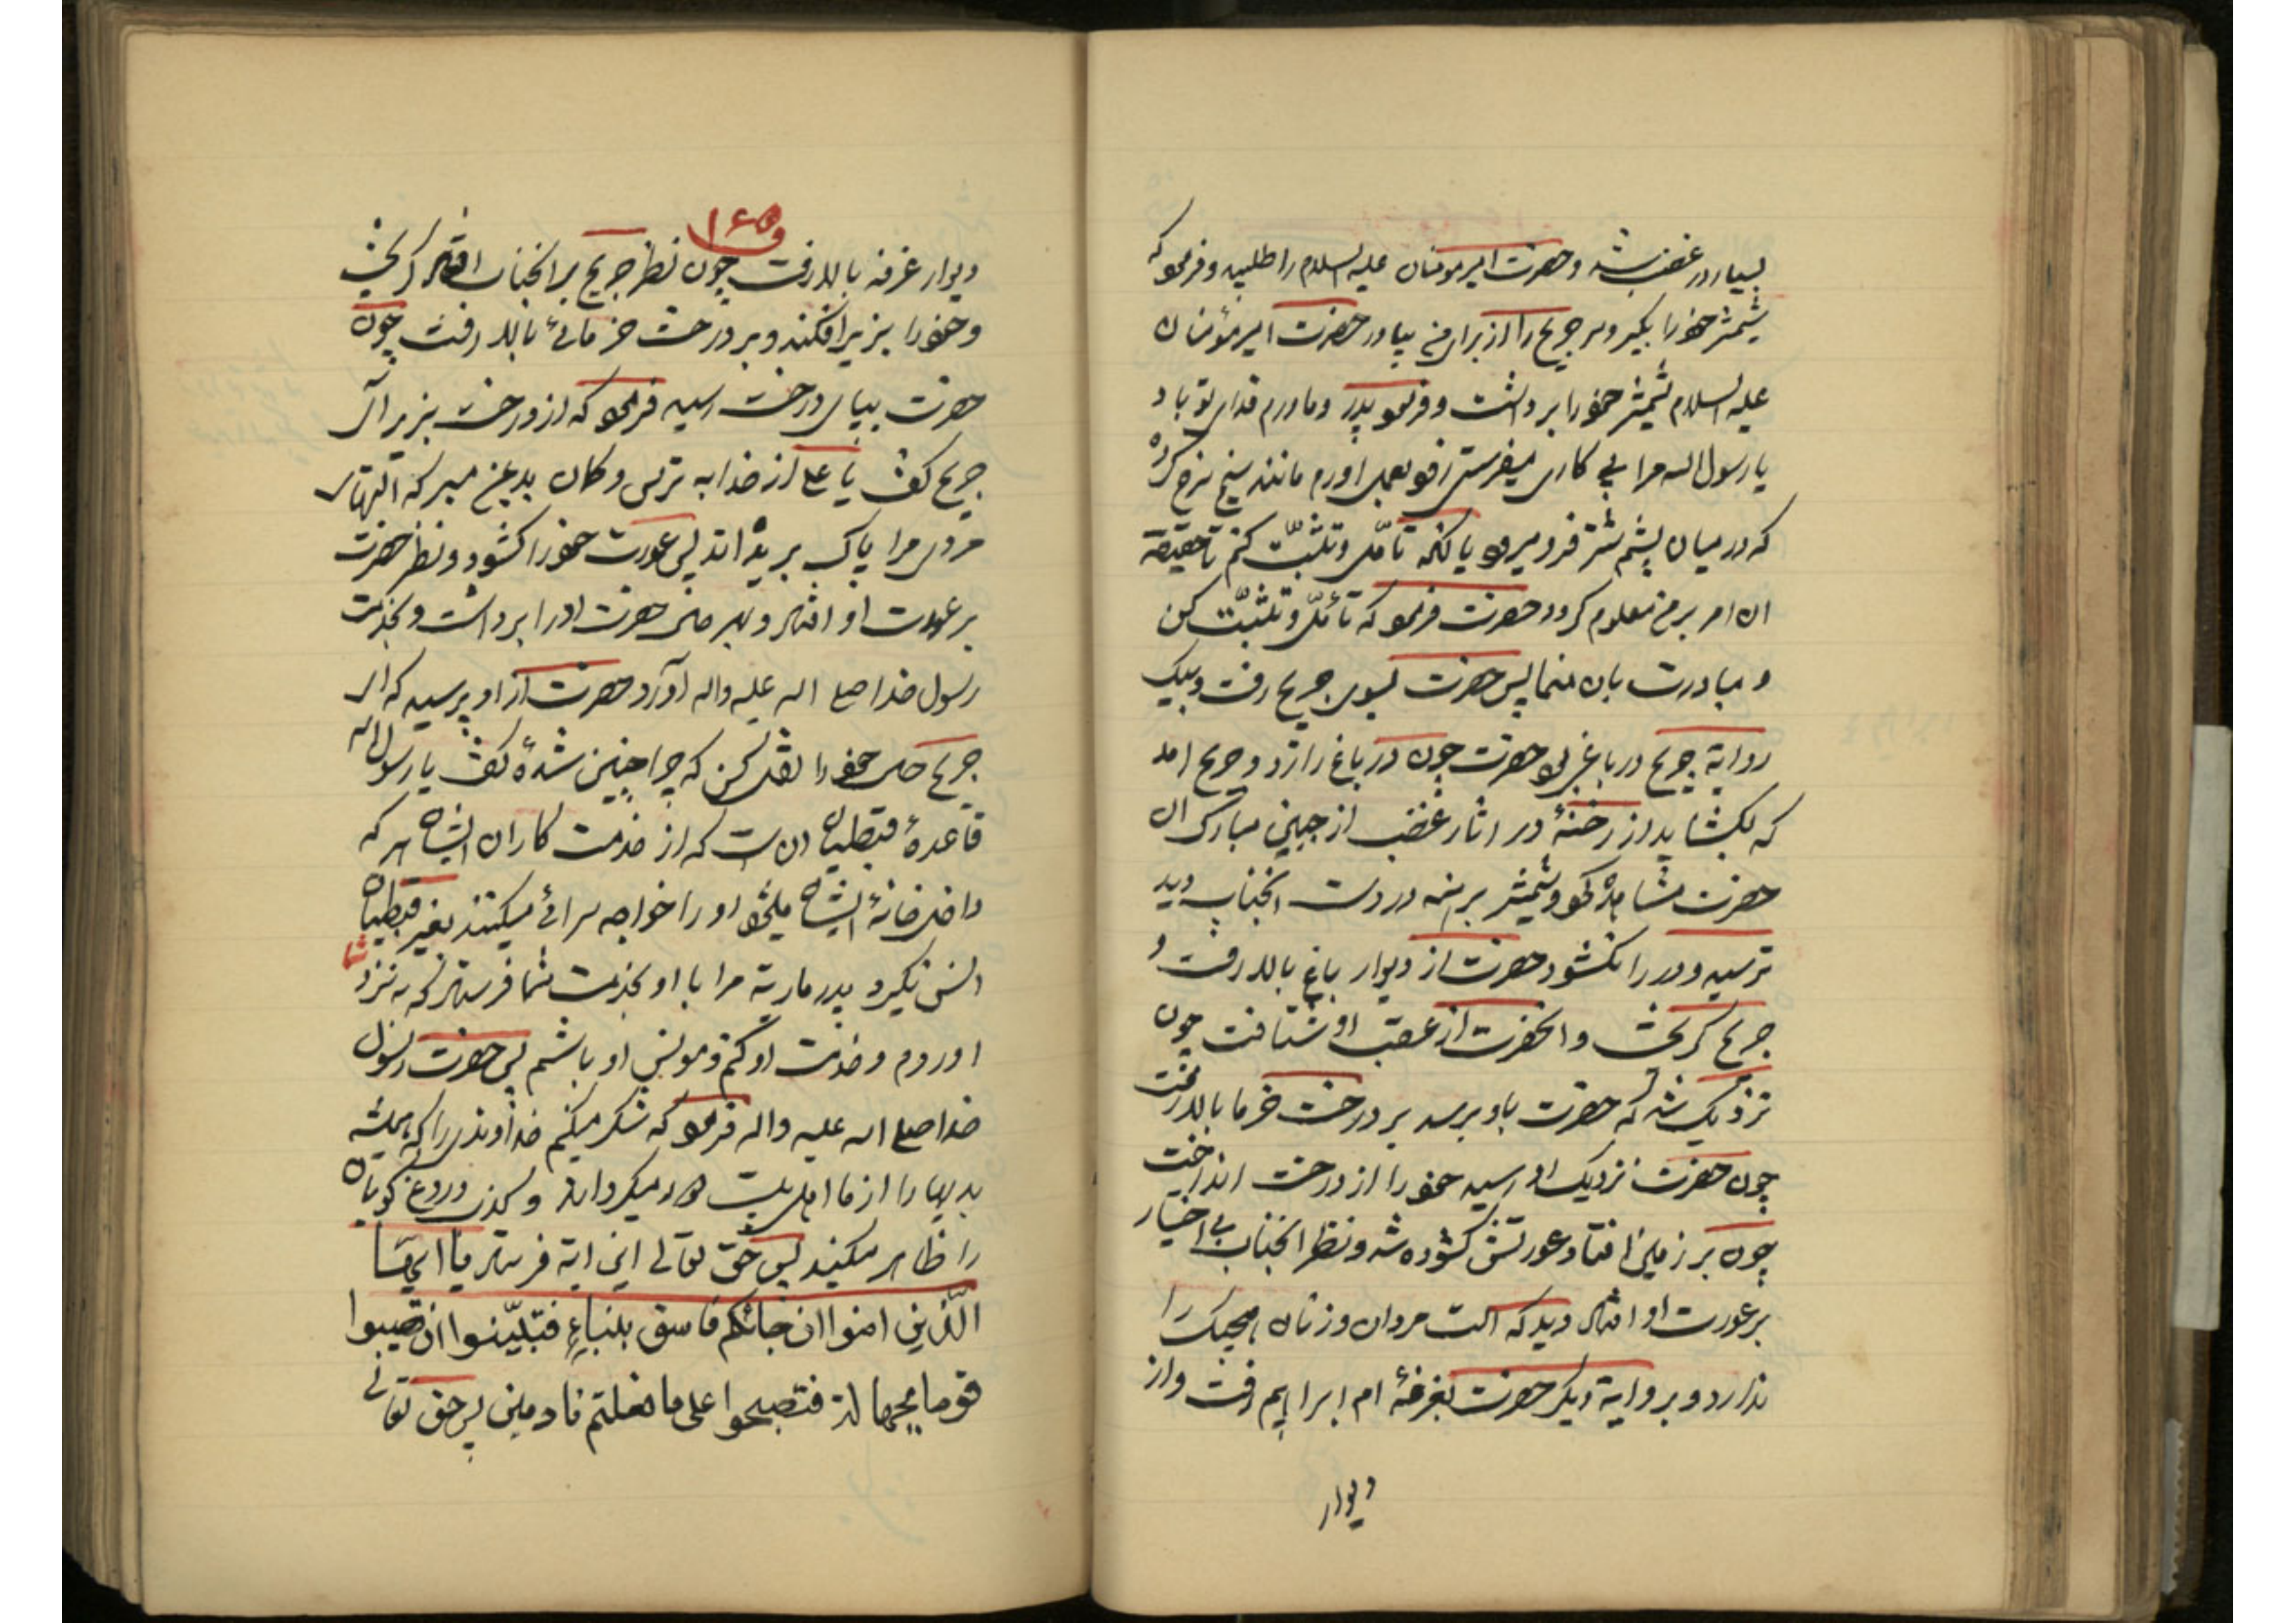 بسیار در غضب شد و حضرت امیر مومنان علیه السلام را طلبید و فرمود که
شمشیر خود را بگیر و سر جریح را از برای من بیاور حضرت امیر مؤمنان
علیه السلام شمشیر خود را برداشت و فرمود پدر و مادرم فدای تو باد
یا رسول الله مرا پی کاری میفرستی زود بعمل اورم مانند سیخ سرخ کرده
که در میان پشم شتر فرو میرود یا آنکه تأمّل و تثبّت کنم تا حقیقة
ان امر بر من معلوم گردد حضرت فرمود که تأمّل و تثبّت کن
و مبادرت بان منما پس حضرت بسوی جریح رفت و بیک
روایة جریح در باغی بود حضرت چون در باغ را زد و جریح امد
که بگشاید از رخنهٔ در اثار غضب از جبین مبارک ان
حضرت مشاهده نمود و شمشیر برهنه در دست انجناب دید
ترسید و در را نگشود حضرت از دیوار باغ بالا رفت و
جریح گریخت و انحضرت از عقب او شتافت چون
نزدیک شد که حضرت باو برسد بر درخت خرما بالا رفت
چون حضرت نزدیک او رسید خود را از درخت انداخت
چون بر زمین افتاد عورتش گشوده شد و نظر انجناب بی اختیار
بر عورت او افتاد دید که الت مردان و زنان هیچیک را
ندارد و بروایة دیگر حضرت بغرفهٔ ام ابراهیم رفت و از
دیوار
۱۶۵
دیوار غرفه بالا رفت چون نظر جریح بر انجناب افتاد گریخت
و خود را بزیر افکند و بر درخت خرمائی بالا رفت چون
حضرت بپای درخت رسید فرمود که از درخت بزیر آی
جریح گفت یا علی از خدا به ترس و گمان بد بمن مبر که التهای
مردی مرا پاک بریده اند پس عورت خود را گشود و نظر حضرت
بر عورت او افتاد و بهر حال حضرت او را برداشت و بخدمت
رسول خدا صلی الله علیه واله آورد حضرت از او پرسید که ای
جریح حال خود را نقل کن که چرا چنین شدهٔ گفت یا رسول الله
قاعدهٔ قبطیان ان است که از خدمت کاران ایشان هر که
داخل خانهٔ ایشان میشود او را خواجه سرائی میکنند بغیر قبطیان
انس نگیرد پدر ماریة مرا با او بخدمت شما فرستاد که به نزد
اوروم و خدمت او کنم و مونس او باشم پس حضرت رسول
خدا صلی الله علیه واله فرمود که شکر میکنم خداوندی را که همیشه
بدیها را از ما اهل بیت دور میگرداند و کذب دروغ گویان
را ظاهر میکند پس حق تعالی این ایة فرستاد یا ایّها
الّذین امنوا ان جائکم فاسق بنباءٍ فتبیّنوا ان تصیبوا
قوما بجهالة فتصبحوا علی ما فعلتم نادمین پس حق تعالی